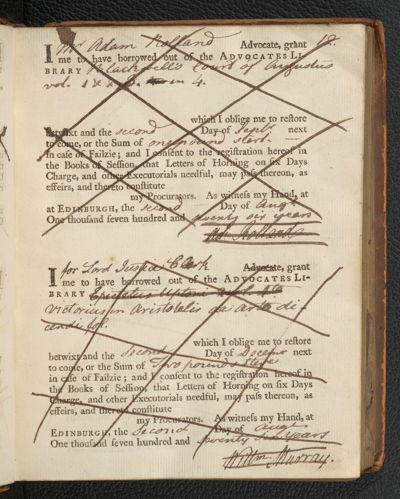 12.
I Mr Adam Rolland Advocate, grant
me to have borrowed out of the ADVOCATES LI-
BRARY Blackwell's Court of Augustus
vol. 1 4.
which I oblige me to restore
betwixt and the second Day of Septr next
to come, or the Sum of one pound sterl.
in case of Failzie; and I consent to the registration hereof in
the Books of Session, that Letters of Horning on six Days
Charge, and other Executorials needful, may pass thereon, as
effeirs, and thereto constitute
my Procurators. As witness my Hand, at
at EDINBURGH, the second Day of Augt
One thousand seven hundred and seventy six years
Ad. Rolland
I for Lord Justice Clerk Advocate, grant
me to have borrowed out of the ADVOCATES LI-
BRARY Epictetus Uptoni
Victorius in Aristotelis de arte di-
cendi fol.
which I oblige me to restore
betwixt and the Second Day of Decemr next
to come, or the Sum of Two pounds sterl
in case of Failzie; and I consent to the registration hereof in
the Books of Session, that Letters of Horning on six Days
Charge, and other Executorials needful, may pass thereon, as
effeirs, and thereto constitute
my Procurators. As witness my Hand, at
EDINBURGH, the Second Day of Augt
One thousand seven hundred and seventy six years
Willm Murray.